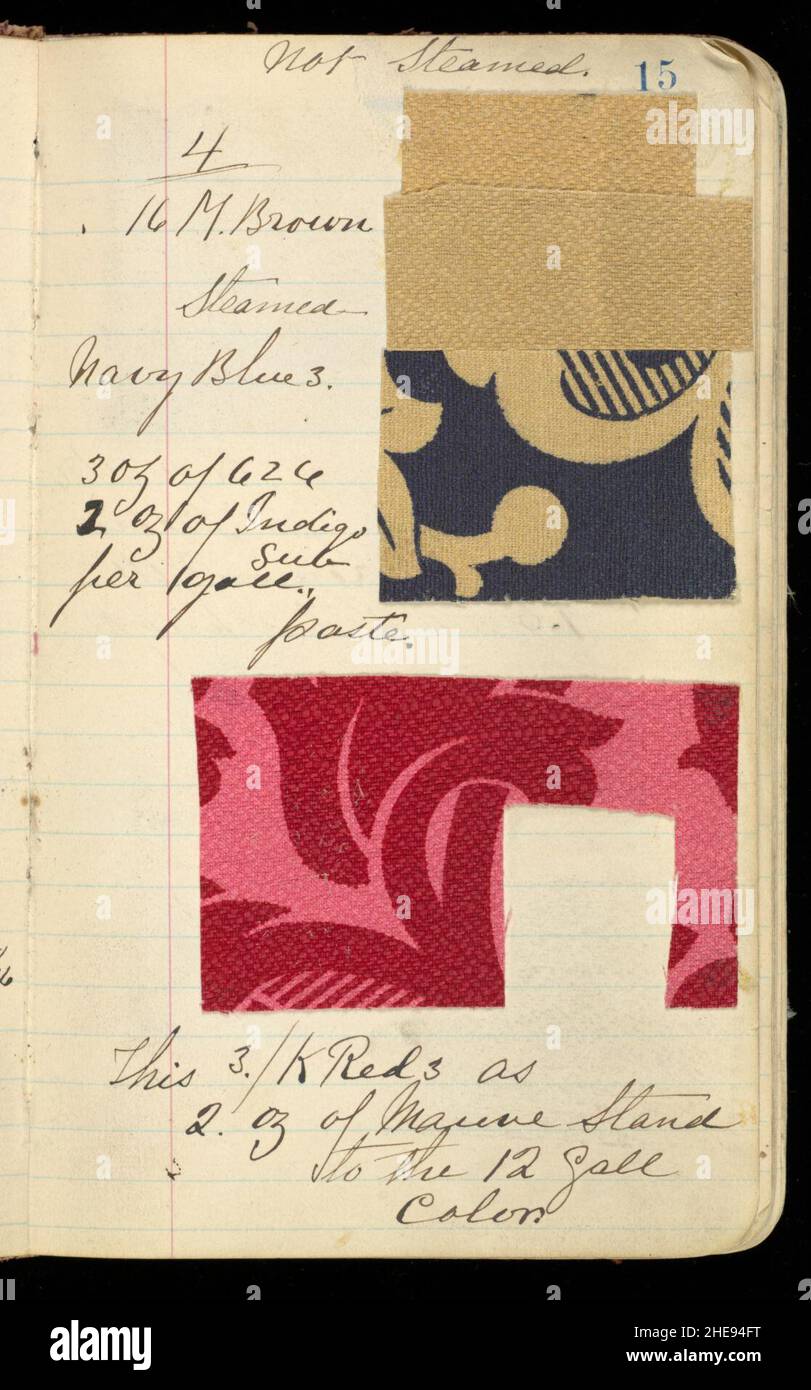 Not Steamed.
15
4
16 M. Brown
Steamed
Navy Blue 3.
3 oz of 626
2 oz of Indigo
Sub
per gall.
paste.
This 3./K Red 3 as
2. oz of Mauve Stand
to the 12 gall
Color
alamy
a
alamy
Image ID: 2HE94FT
www.alamy.com